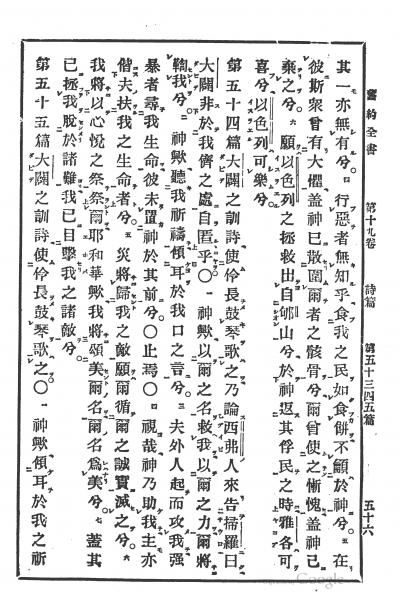 舊約全書 第十九卷 詩篇 第五十三四五篇 五十六
其一亦無有兮○四行惡者無知乎食我之民如食餅不顧於神兮○五在
彼斯衆曾有大懼蓋神已散圍爾者之骸骨兮爾曾使之慚愧蓋神已
棄之兮○六願以色列之拯救出自郇山兮於神返其俘民之時雅各可
喜兮以色列可樂兮
第五十四篇大闢之訓詩使伶長鼓琴歌之乃論西弗人來告掃羅曰
大闢非於我儕之處自匿乎○一神歟以爾之名救我以爾之力爾將
鞫我兮○二神歟聽我祈禱傾耳於我口之音兮○三夫外人起而攻我强
暴者尋我生命彼未置神於其前兮○止焉○四視哉神乃助我主亦
偕夫扶我之生命者兮○五災將歸我之敵願爾循爾之誠實滅之兮○六
我將以心悅之祭祭爾耶和華歟我將頌美爾名爾名爲美兮○七蓋其
已拯我脫於諸難我已目擊我之諸敵兮
第五十五篇大闢之訓詩使伶長鼓琴歌之○一神歟傾耳於我之祈
Google